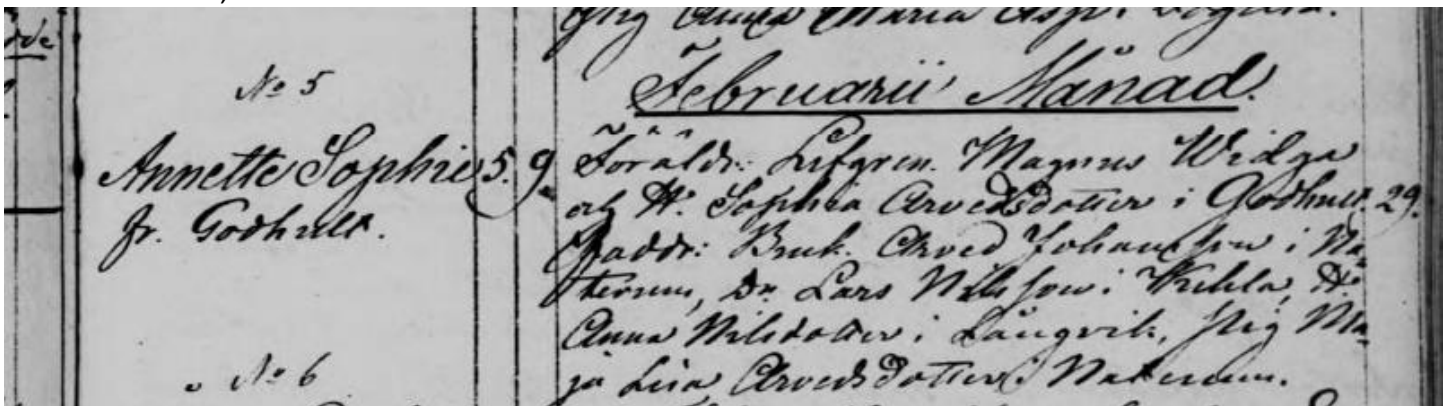 Stig Anna Maria Asp i
Februarii Månad.
No 5
Annette Sophie 5. 9. Föräldr: Lifgren. Magnus Widga
fr. Godhult. och H. Sophia Arvedsdotter i Godhult. 29.
Faddr: Bruk. Arved Johansson i Na-
terum, Dr. Lars Nilsson i Kihla, H.
Anna Nilsdotter i Långvik, Pig Ma-
No 6 ja Lisa Arvedsdotter i Naterum.